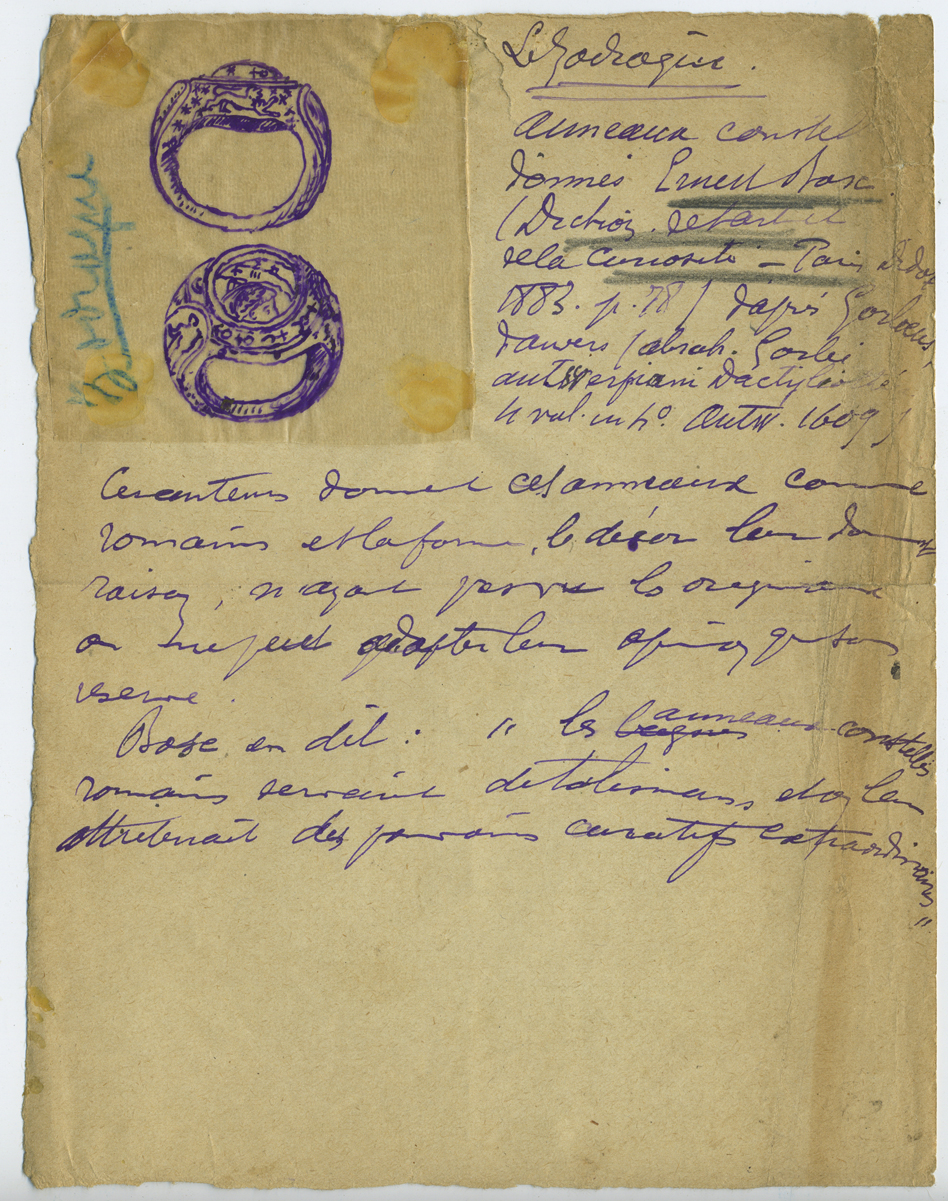 Zodiaque
Le Zodiaque.
anneaux constel
donnés Ernest Bosc
(Diction. de l'art et
de la curiosité – Paris Didot
1883. p. 78) d'après Gorlaeus,
d'anvers (abrah. Gorlæi
antwerpiani Dactyliothe
4°. Antw. 1609)
Ces auteurs donnent ces anneaux comme
romains et la forme, le décor leur donnent
raison, n'ayant pas vu les originaux
on ne peut adopter leur opinion que sous
reserve.
Bosc en dit : " les bagues anneaux constellés
romains servaient de talismans, et on leur
attribuait des pouvoirs curatifs extraordinaires "